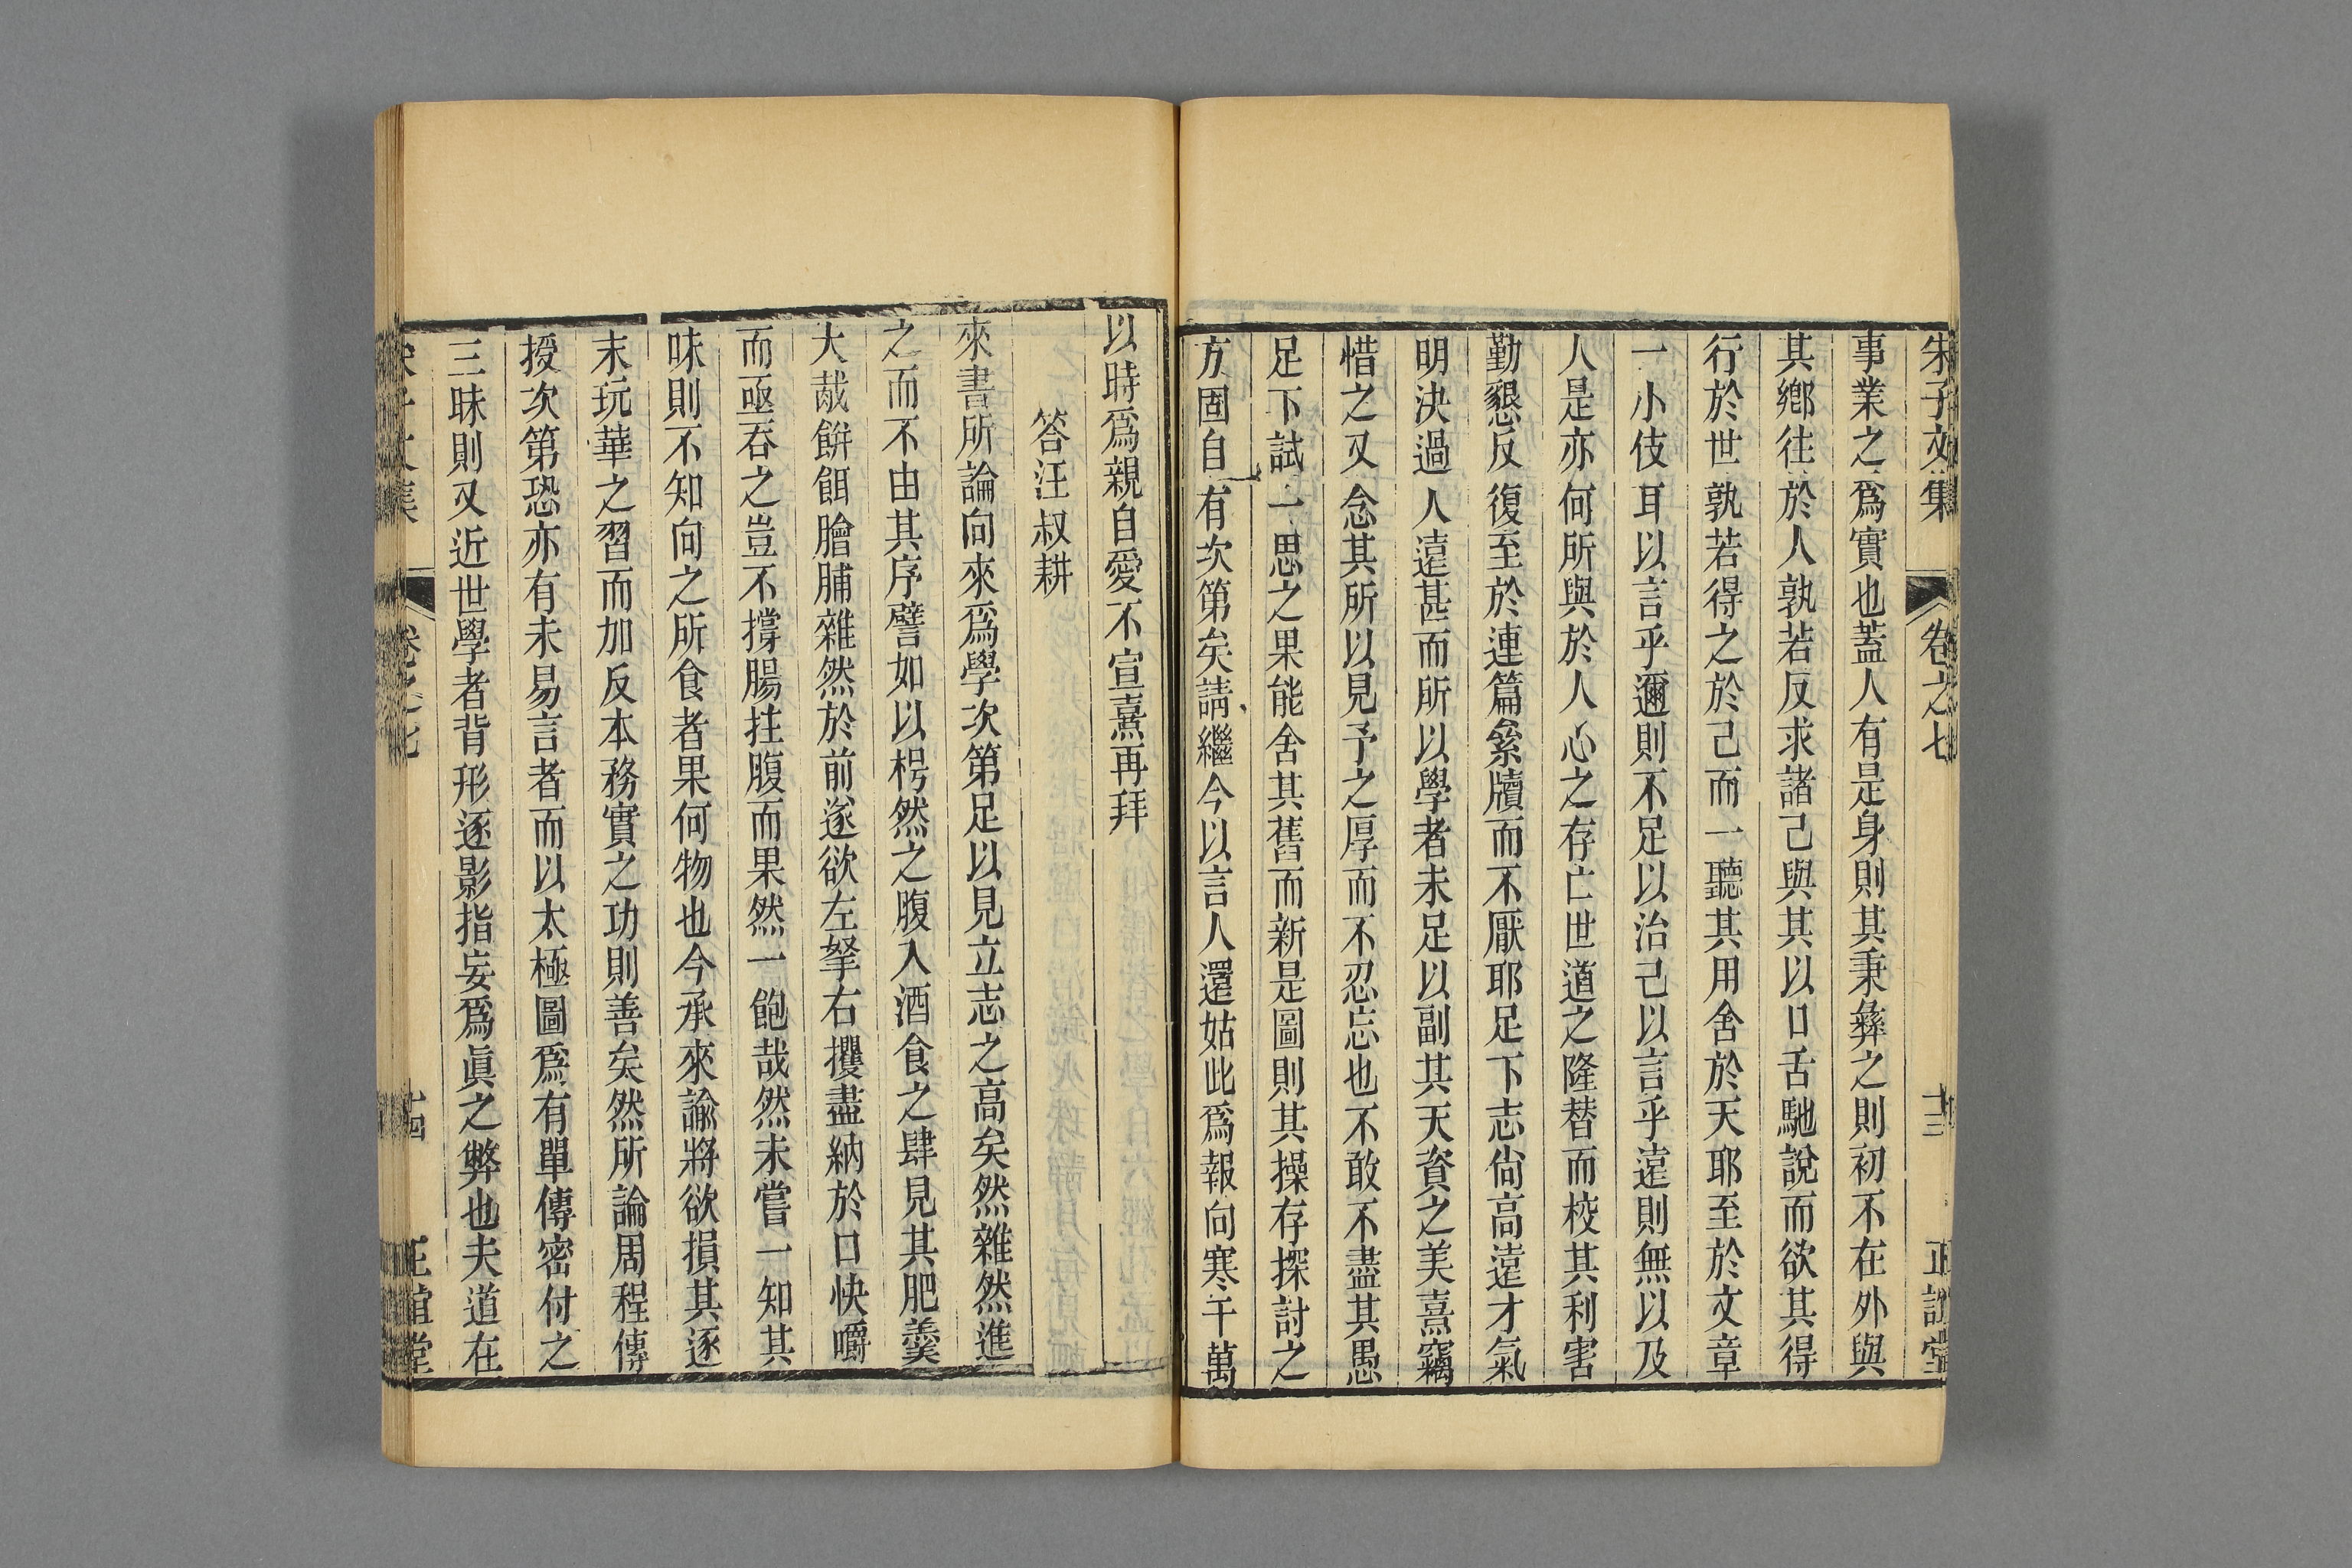 朱子文集 卷之七 十三 正誼堂
事業之爲實也蓋人有是身則其秉彝之則初不在外與
其鄉往於人孰若反求諸己與其以口舌馳說而欲其得
行於世孰若得之於己而一聽其用舍於天耶至於文章
一小伎耳以言乎邇則不足以治己以言乎遠則無以及
人是亦何所與於人心之存亡世道之隆替而校其利害
勤懇反復至於連篇絫牘而不厭耶足下志尙高遠才氣
明決過人遠甚而所以學者未足以副其天資之美熹竊
惜之又念其所以見予之厚而不忍忘也不敢不盡其愚
足下試一思之果能舍其舊而新是圖則其操存探討之
方固自有次第矣請繼今以言人還姑此爲報向寒千萬
以時爲親自愛不宣熹再拜
答汪叔耕
來書所論向來爲學次第足以見立志之高矣然雜然進
之而不由其序譬如以枵然之腹入酒食之肆見其肥羹
大胾餅餌膾脯雜然於前遂欲左拏右攫盡納於口快嚼
而亟吞之豈不撐腸拄腹而果然一飽哉然未嘗一知其
味則不知向之所食者果何物也今承來諭將欲損其逐
末玩華之習而加反本務實之功則善矣然所論周程傳
授次第恐亦有未易言者而以太極圖爲有單傳密付之
三昧則又近世學者背形逐影指妄爲眞之弊也夫道在
朱子文集 卷之七 十四 正誼堂